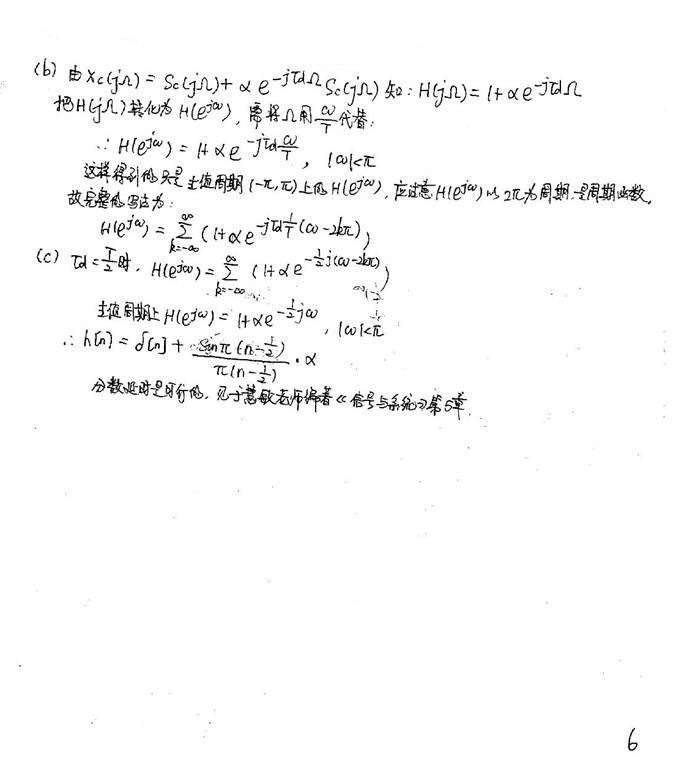 (b) 由 Xc(jΩ) = Sc(jΩ) + α e^{-jτdΩ} Sc(jΩ) 知: H(jΩ) = 1+αe^{-jτdΩ}
把 H(jΩ) 转化为 H(e^{jω}), 需将Ω用 ω/T 代替:
∴ H(e^{jω}) = 1+αe^{-jτd ω/T}, |ω|<π
这样得到的只是主值周期(-π,π)上的H(e^{jω}), 应注意H(e^{jω})以2π为周期,是周期函数,
故完整的写法为:
H(e^{jω}) = Σ_{k=-∞}^{∞} (1+αe^{-jτd 1/T (ω-2kπ)})
(c) τd = T/2 时, H(e^{jω}) = Σ_{k=-∞}^{∞} (1+αe^{-1/2 j(ω-2kπ)})
主值周期上 H(e^{jω}) = 1+αe^{-1/2 jω}, |ω|<π
∴ h[n] = δ[n] + sinπ(n-1/2) / π(n-1/2) · α
分数延时是可行的, 见于慧敏老师编著《信号与系统》第5章.
6